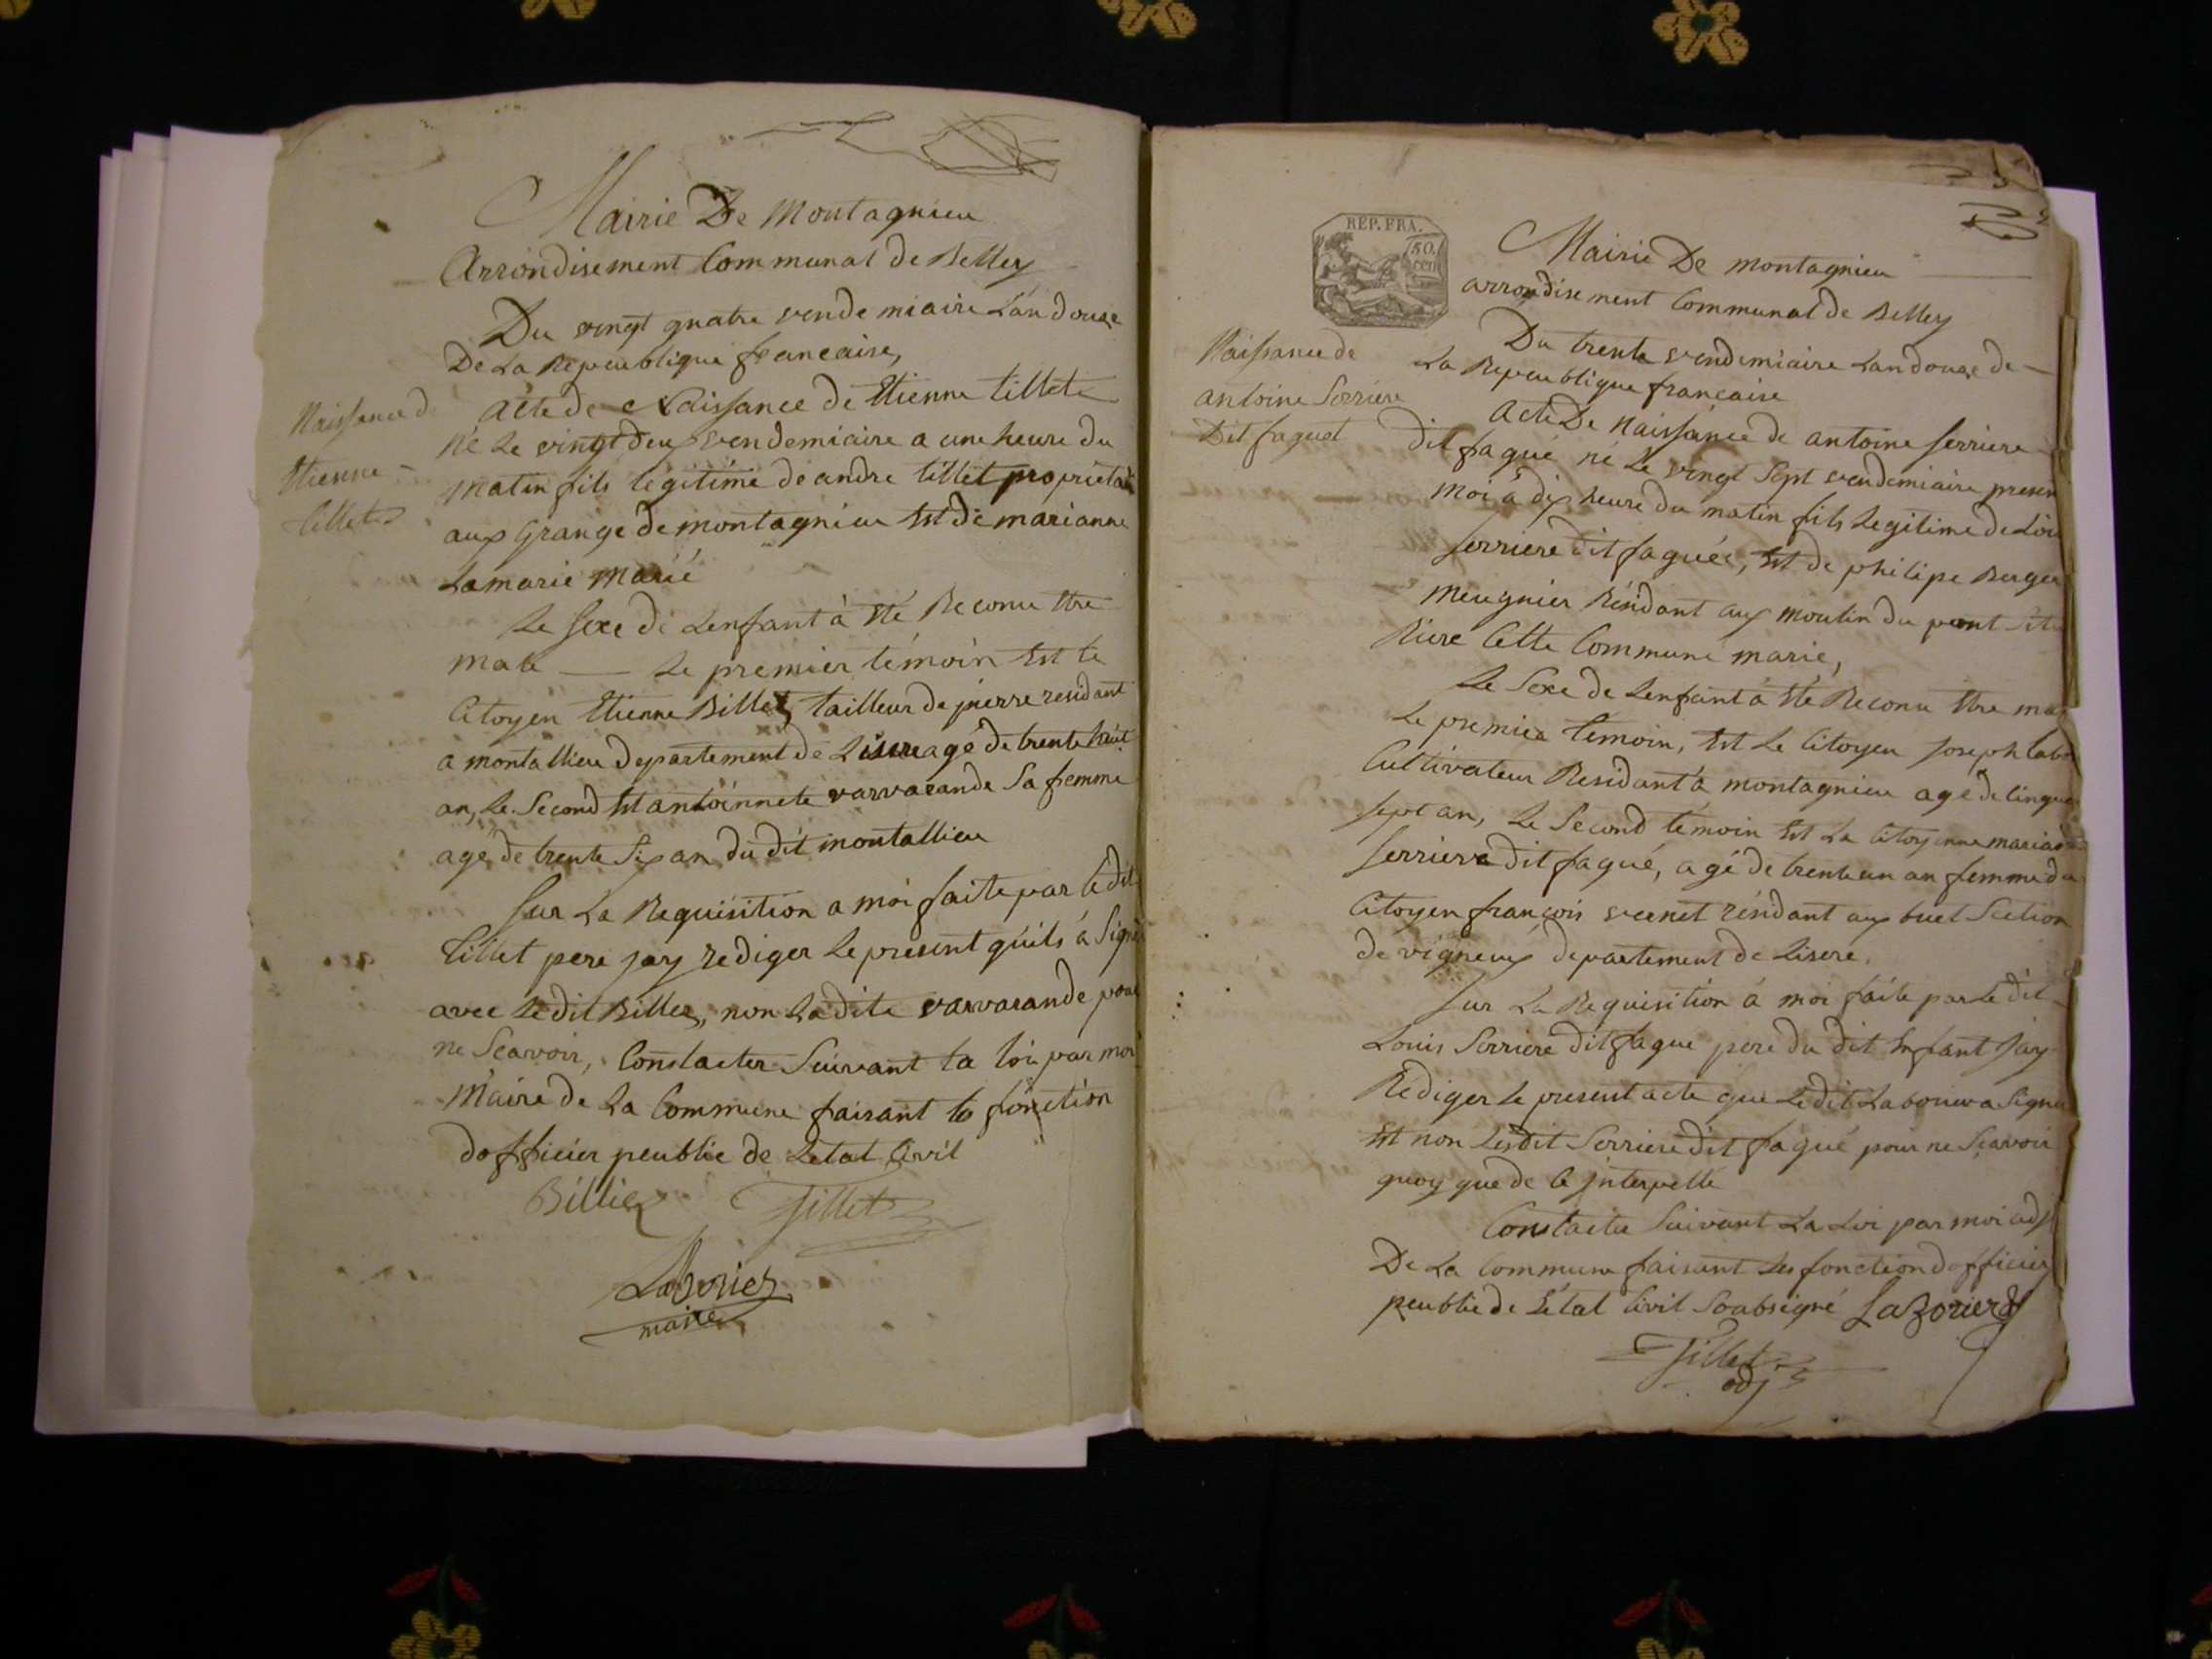 Mairie De Montagnieu
Arrondisement Communal de Belley
Du vingt quatre vendemiaire L'an douze
De La Repeublique francaise,
Naissance de
Etienne
tillet
Acte de Naissance de Etienne tillet
né Le vingt deux vendemiaire a une heure du
matin fils legitime de andre tillet proprietai
aux Grange de montagnieu Est de marianne
Lamarie Marié
Le sexe de Lenfant à Eté Reconu Etre
male — Le premier témoin Est le
Citoyen Etienne Billiez tailleur de pierre residant
a montallieu departement de Lisere agé de trente huit
an, Le Second Est antoinnete varvarande Sa femme
agé de trente Six an du dit montallieu
Sur La Requisition a moi faite par le dit
tillet pere jay rediger Le present quils à Signé
avec Le dit Billiez, non Ladite varvarande pour
ne Scavoir, Constacter Suivant la loi par moi
Maire de La Commune faisant la fonction
dofficier peublic de Letat Civil
Billiez Tillet
Laborier
maire
REP. FRA.
50.
CEN
Mairie De montagnieu
arrondisement Communal de Belley
Du trente vendemiaire Lan douze de
La Repeublique francaise
Naissance de
antoine Serriere
Dit faguet
Acte De Naissance de antoine Serriere
dit fagué né Le vingt Sept vendemiaire presen
moi à dix heure du matin fils Legitime de Loui
Serriere dit fagué, Est de philipe Berger
meugnier Résidant aux moulin du pont
Riere Cette Commune marié,
Le Sexe de Lenfant à Eté Reconu Etre ma
Le premier témoin, Est Le Citoyen Joseph Labo
Cultivateur Residant à montagnieu agé de Cinqua
Sept an, Le Second témoin Est La Citoyenne maria
Serriere dit fagué, agé de trente un an femme du
Citoyen françois residant aux buet Section
de vignieux departement de Lisere.
Sur La Requisition à moi faite par le dit
Louis Serriere dit fague pere du dit Enfant Jay
Rediger Le present acte que Le dit Laborier a Signé
Est non Lesdit Serriere dit fagué pour ne Scavoir
quoy que de ce interpellé
Constacter Suivant La Loi par moi adj
De La Commune faisant Les fonction dofficier
peublic de Létat Civil Soubsigné Laborier
Tillet
adj